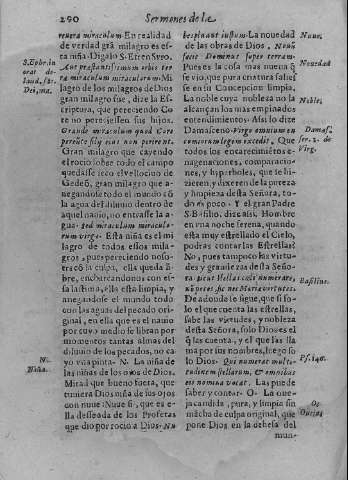 290 Sermones de la
reuera miraculum. En realidad
de verdad grã milagro es es-
ta niña. Digalo S. Efren Syro.
miraculum miraculorum. Mi
lagro de los milagros de Dios
gran milagro fue, dize la Es-
criptura, que pereciendo Co
re no pereciessen sus hijos.
Grande miraculum quod Core
pereunte filij eius non perirent.
Gran milagro que cayendo
el rocio sobre todo el campo
quedasse seco el vellocino de
Gedeõ, gran milagro que a-
negandose todo el mundo cõ
la agua del diluuio dentro de
aquel nauio, no entrasse la a-
gua. Sed miraculum miraculo-
rum virgo. Esta niña es el mi
lagro de todos essos mila-
gros, pues pereciendo noso-
tros cõ la culpa, ella queda li-
bre,
lastima, ella esta limpia, y
anegandose el mundo todo
con las aguas del pecado ori-
ginal, en ella que es el nauio
por cuyo medio se libran por
momentos tantas almas del
diluuio de los pecados, no ca-
yo vna pinta. N. La niña de
las niñas de los ojos de Dios.
Mirad que bueno fuera, que
tuuiera Dios niña de sus ojos
con nuue: Nuue si, que es e-
lla desseada de los Profetas
que dio por rocio a Dios. Nu
S. Ephr. in
orat de
laud. sãc.
Dei, ma.
N.
Niña.
bes pluant iustum. La nouedad
de las obras de Dios,
fecit Dominus super terram.
Pues es la cosa mas nueua q̃
se vio, que criatura saliesse
se en su Concepcion limpia.
La noble cuya nobleza no la
alcançan los mas empinados
entendimientos. Assi lo dize
Damasceno. Virgo omnium en
comiorum legem excedit, Que
todos los encarecimientos e-
nagenaciones, comparacio-
nes, y hyperboles, que se hi-
zieren, y dixeren de la pureza
y limpieza desta Señora, to-
do es poco. Y el gran Padre
S. Basilio, dize assi. Hombre
en vna noche serena, quando
esta muy estrellado el Cielo,
podras contar las Estrellas?
No, pues tampoco las virtu-
des y grandeza de esta Seño-
ra.
De adonde le sigue, que si so-
lo el que cuenta las estrellas,
sabe las virtudes, y nobleza
desta Señora, solo Dios es el
q̃ las cuenta, y el que las lla
ma por sus nombres, luego so
lo Dios. Qui numerat multi-
tudinem stellarum, & omnibus
eis nomina vocat. Las puede
saber y contar. O. La oue-
ja candida, pura, y limpia sin
mãcha de culpa original, que
pone Dios en la dehesa del
mun-
Nuue.
Noble.
Damas.
ser. 2. de
Virg.
Basilius.
Ps. 146.
O.